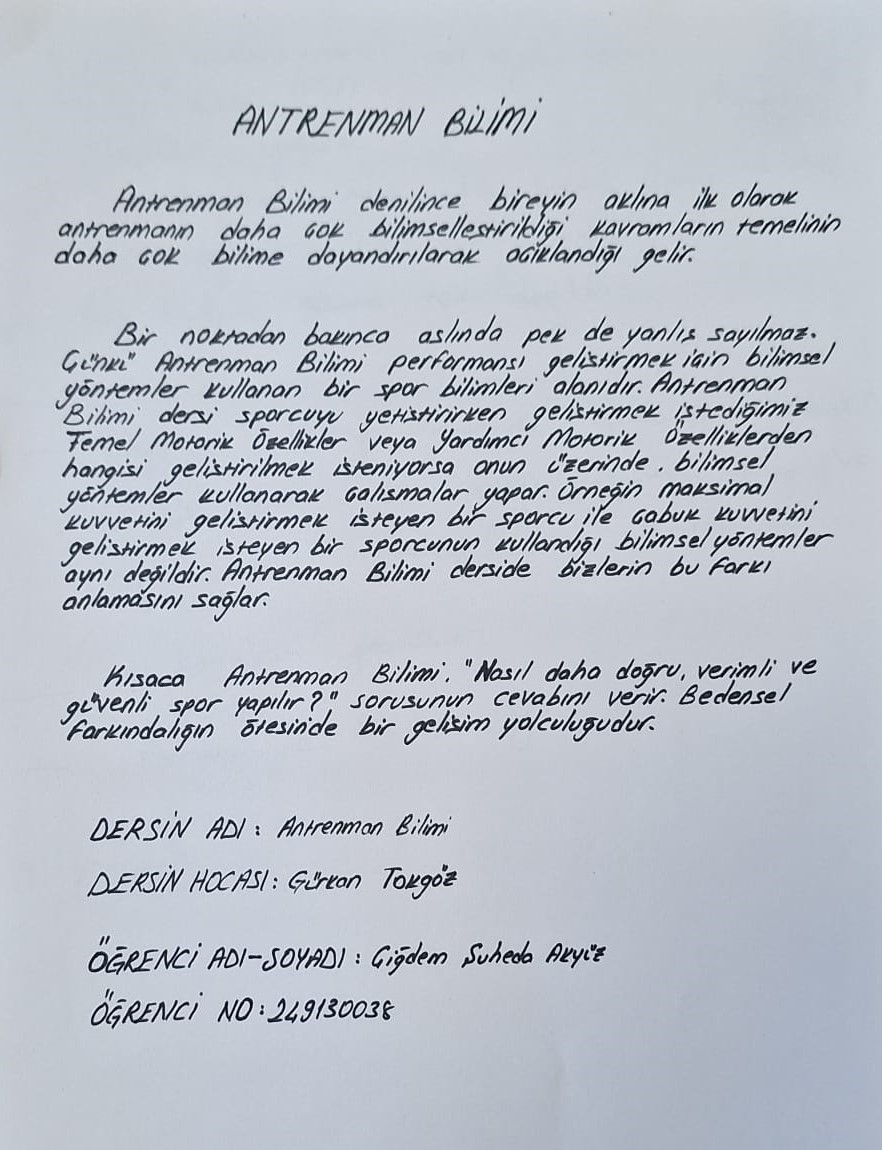 ANTRENMAN BİLİMİ
Antrenman Bilimi denilince bireyin aklına ilk olarak
antrenmanın daha çok bilimselleştirildiği kavramların temelinin
daha çok bilime dayandırılarak açıklandığı gelir.
Bir noktadan bakınca aslında pek de yanlış sayılmaz.
Çünkü Antrenman Bilimi performansı geliştirmek için bilimsel
yöntemler kullanan bir spor bilimleri alanıdır. Antrenman
Bilimi dersi sporcuyu yetiştirirken geliştirmek istediğimiz
Temel Motorik Özellikler veya Yardımcı Motorik Özelliklerden
hangisi geliştirilmek isteniyorsa onun üzerinde, bilimsel
yöntemler kullanarak çalışmalar yapar. Örneğin maksimal
kuvvetini geliştirmek isteyen bir sporcu ile çabuk kuvvetini
geliştirmek isteyen bir sporcunun kullandığı bilimsel yöntemler
aynı değildir. Antrenman Bilimi derside bizlerin bu farkı
anlamasını sağlar.
Kısaca Antrenman Bilimi, "Nasıl daha doğru, verimli ve
güvenli spor yapılır?" sorusunun cevabını verir. Bedensel
farkındalığın ötesinde bir gelişim yolculuğudur.
DERSİN ADI : Antrenman Bilimi
DERSİN HOCASI : Gürkan Tokgöz
ÖĞRENCİ ADI-SOYADI : Çiğdem Şuheda Akyüz
ÖĞRENCİ NO : 249130038